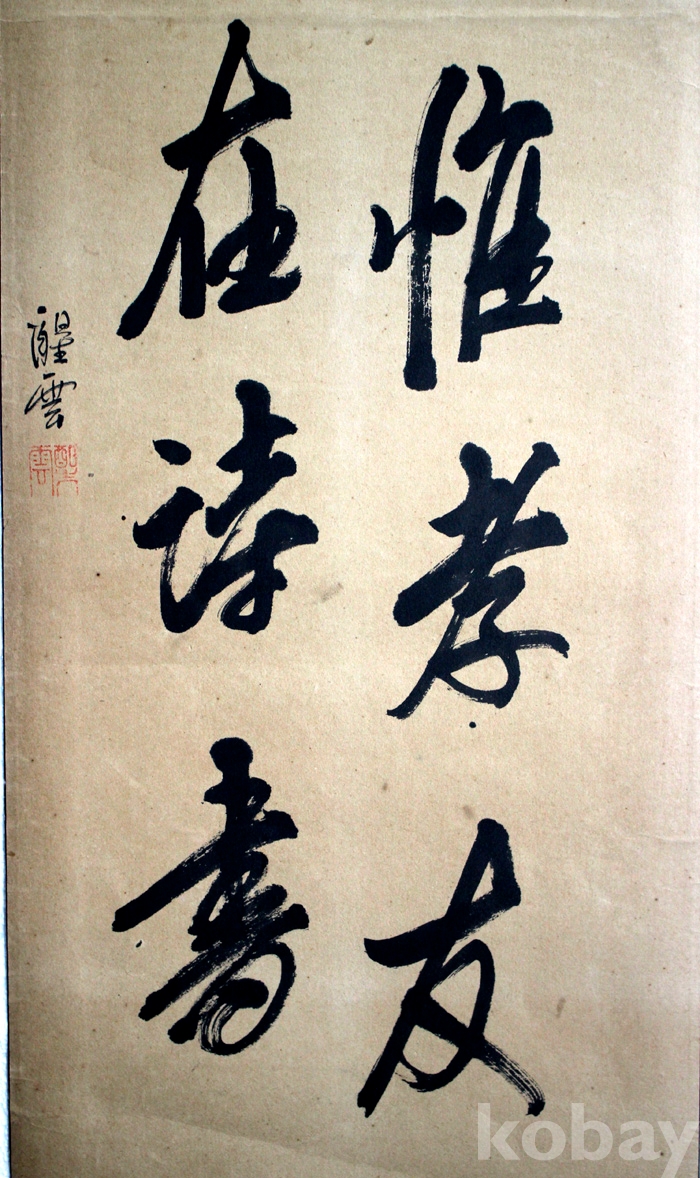 惟孝友
在詩書
醒雲
kobay